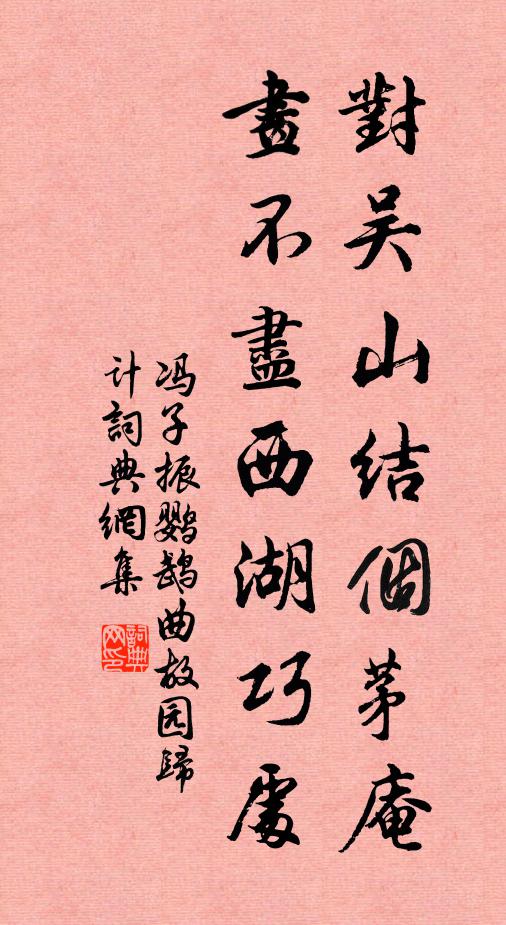 對吴山結個茅庵
畫不盡西湖巧處
冯子振鹦鹉曲故园歸
计詞典網集
詞典
网印